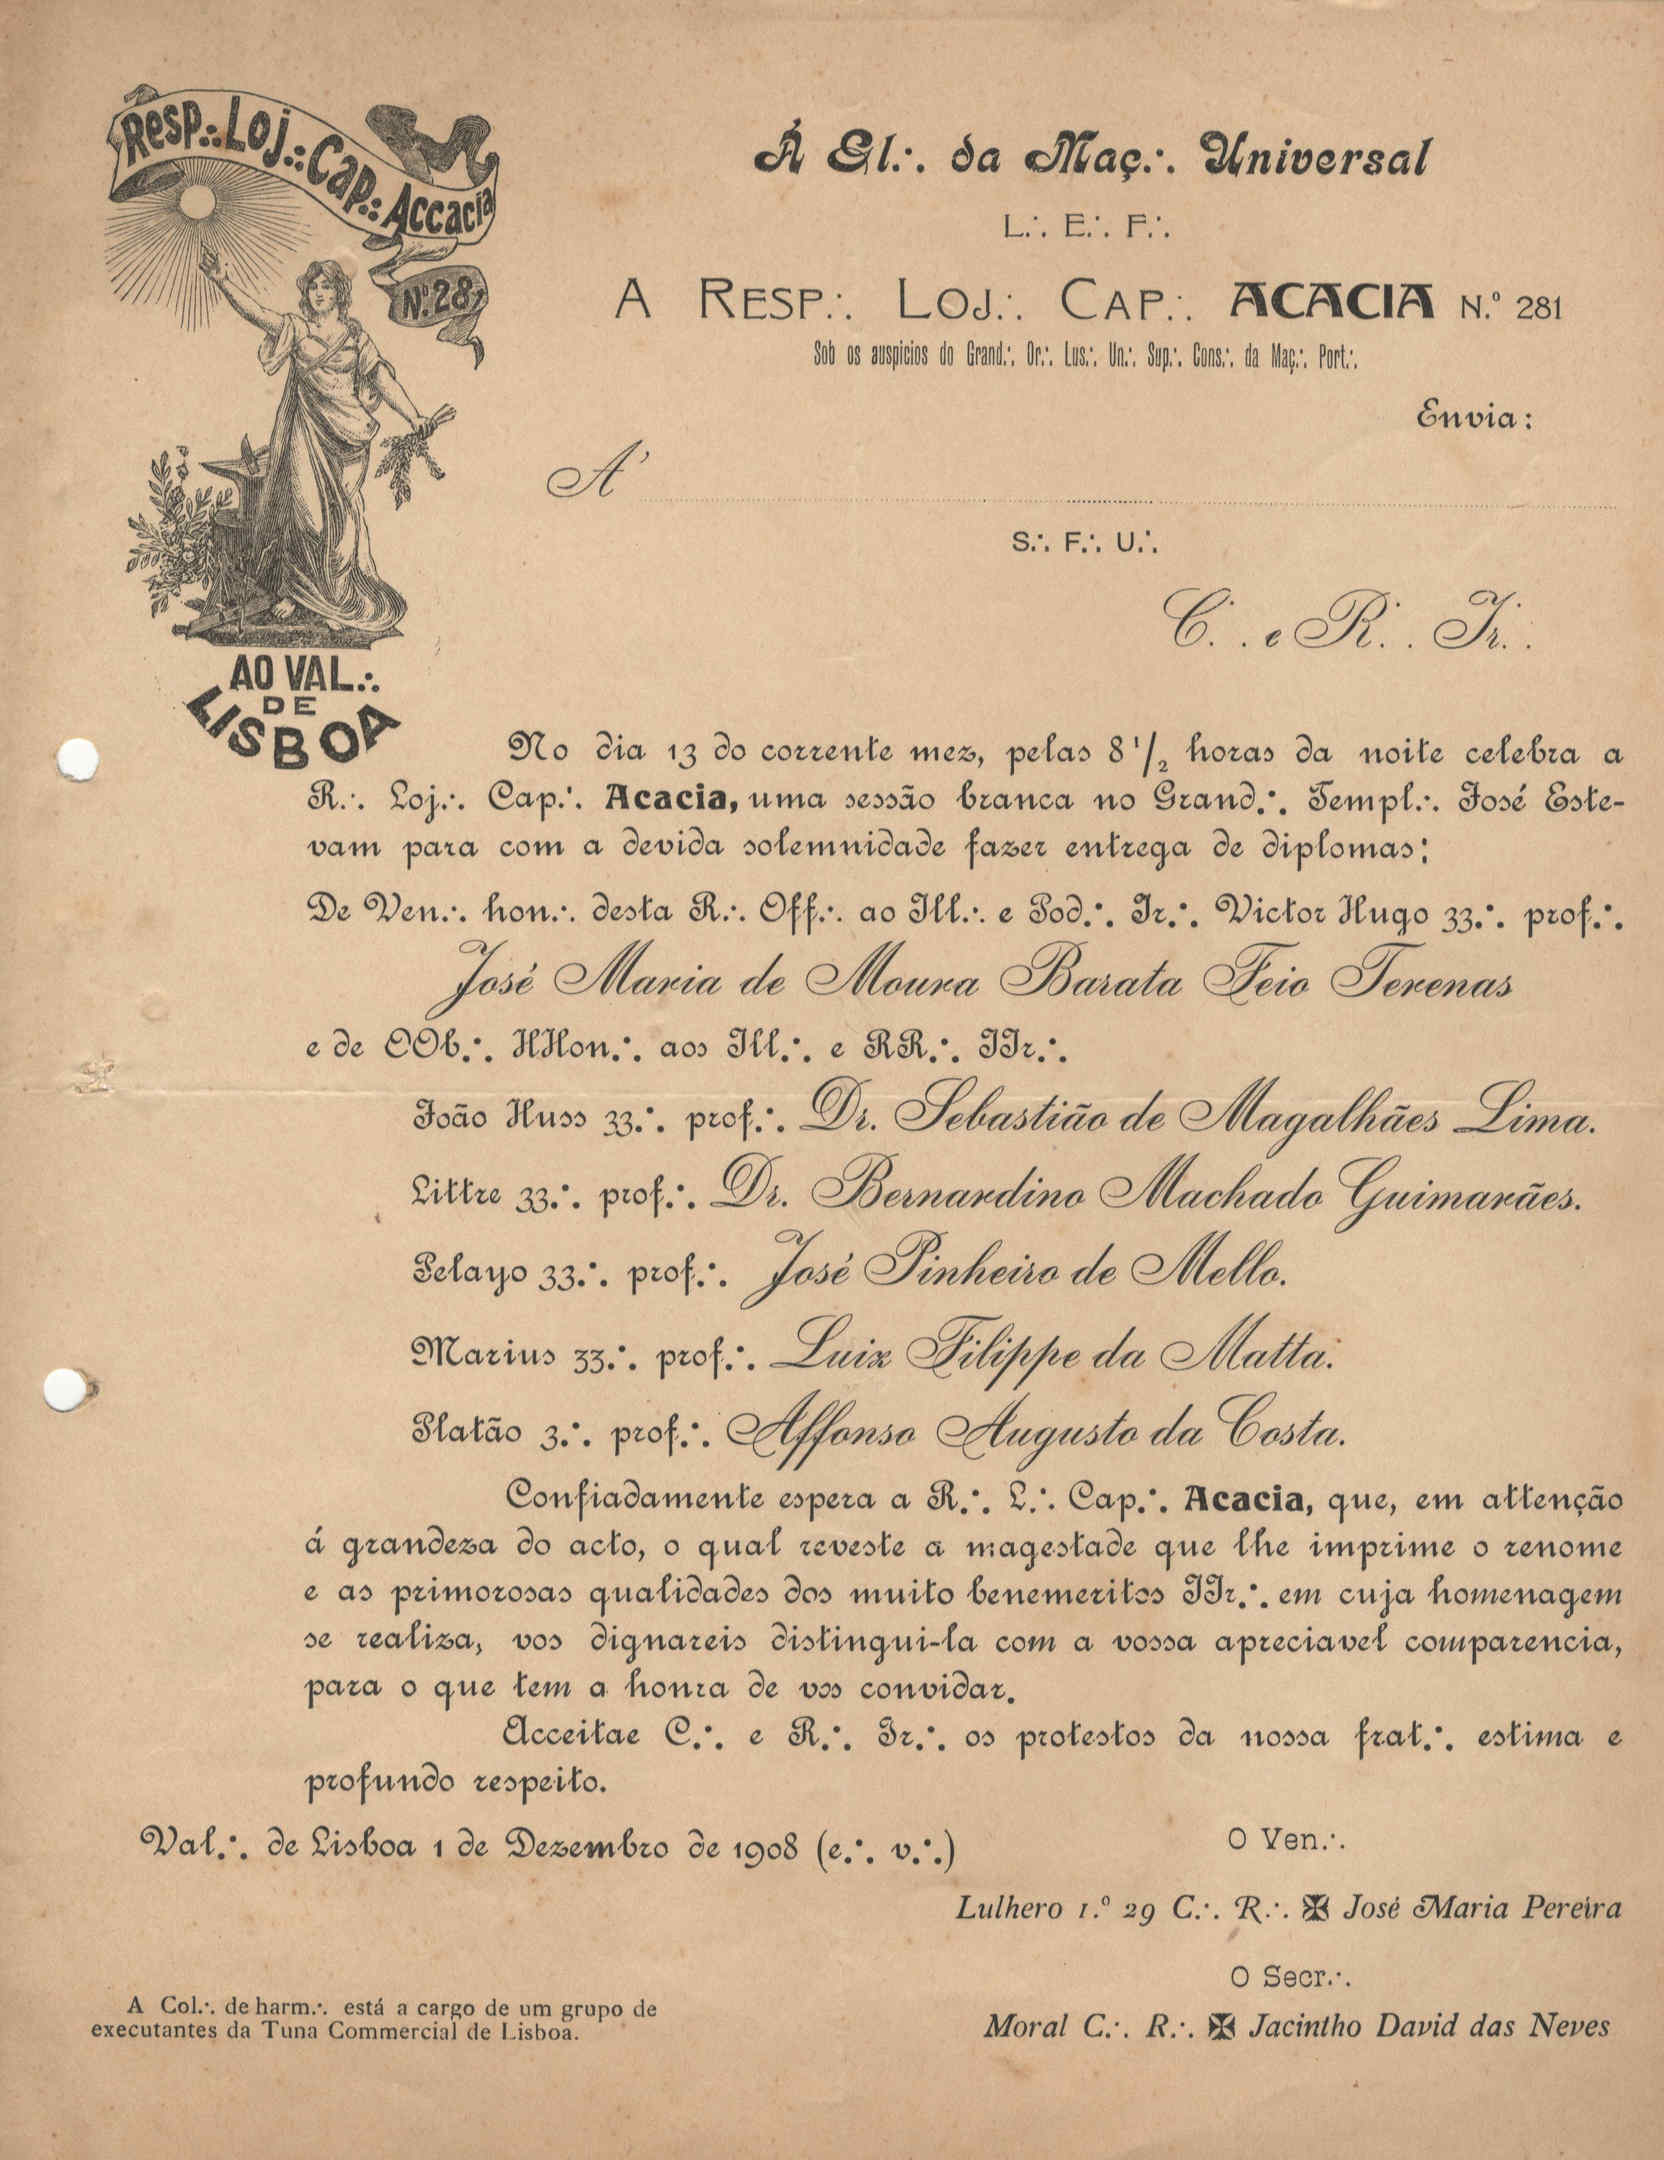 Resp.·. Loj.·. Cap.·. Accacia
N.º 281
AO VAL.·.
DE
LISBOA
Á Gl.·. da Maç.·. Universal
L.·. E.·. F.·.
A RESP.·. LOJ.·. CAP.·. ACACIA N.º 281
Sob os auspicios do Grand.·. Or.·. Lus.·. Un.·. Sup.·. Cons.·. da Maç.·. Port.·.
Envia:
A'
S.·. F.·. U.·.
C. . e R. . Ir. .
No dia 13 do corrente mez, pelas 8 1/2 horas da noite celebra a
R.·. Loj.·. Cap.·. Acacia, uma sessão branca no Grand.·. Templ.·. José Este-
vam para com a devida solemnidade fazer entrega de diplomas:
De Ven.·. hon.·. desta R.·. Off.·. ao Ill.·. e Pod.·. Ir.·. Victor Hugo 33.·. prof.·.
José Maria de Moura Barata Feio Terenas
e de OOb.·. HHon.·. aos Ill.·. e RR.·. IIr.·.
João Huss 33.·. prof.·. Dr. Sebastião de Magalhães Lima.
Littre 33.·. prof.·. Dr. Bernardino Machado Guimarães.
Pelayo 33.·. prof.·. José Pinheiro de Mello.
Marius 33.·. prof.·. Luiz Filippe da Matta.
Platão 3.·. prof.·. Affonso Augusto da Costa.
Confiadamente espera a R.·. L.·. Cap.·. Acacia, que, em attenção
á grandeza do acto, o qual reveste a magestade que lhe imprime o renome
e as primorosas qualidades dos muito benemeritos IIr.·. em cuja homenagem
se realiza, vos dignareis distingui-la com a vossa apreciavel comparencia,
para o que tem a honra de vos convidar.
Acceitae C.·. e R.·. Ir.·. os protestos da nossa frat.·. estima e
profundo respeito.
Val.·. de Lisboa 1 de Dezembro de 1908 (e.·. v.·.)
O Ven.·.
Lulhero 1.º 29 C.·. R.·. ✠ José Maria Pereira
O Secr.·.
Moral C.·. R.·. ✠ Jacintho David das Neves
A Col.·. de harm.·. está a cargo de um grupo de
executantes da Tuna Commercial de Lisboa.